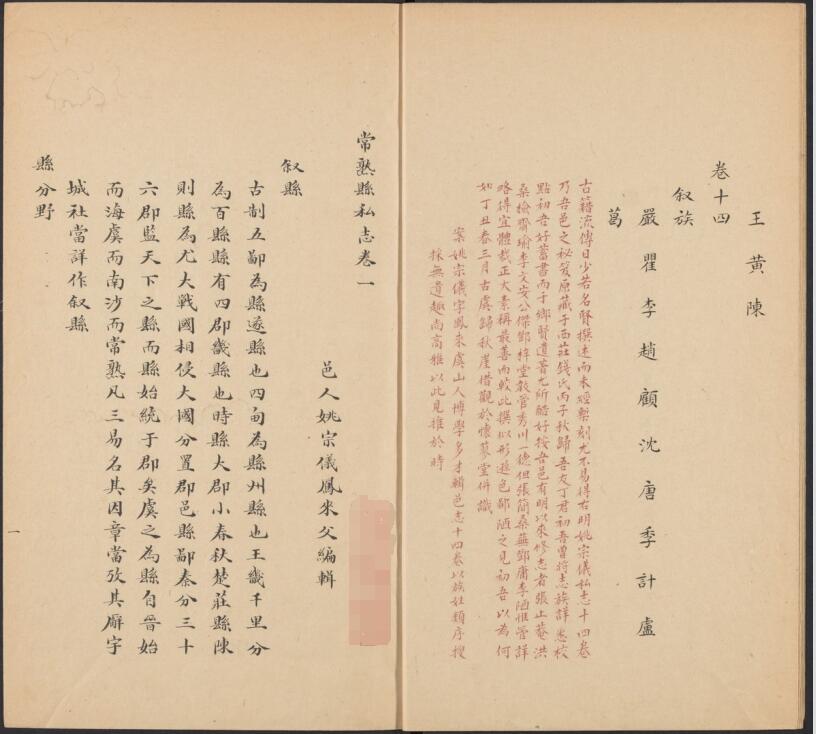 王黃陳
卷十四
叙族
嚴瞿李趙顧沈唐季計盧
葛
古籍流傳日少若名賢撰述而未經槧刻尤不易得右明姚宗儀私志十四卷
乃吾邑之秘笈原藏于西莊錢氏丙子秋歸吾友丁君初吾曾將志族詳悉校
點初吾好蓄書而于鄉賢遺著尤所酷好按吾邑有明以來修志者張止菴洪
桑檢齋瑜李文安公傑鄧梓堂韍管秀川一德但張簡桑蕪鄧庸李陋惟管詳
略得宜體裁正大素稱最善而較此撰似形遜色鄙陋之見初吾以為何
如丁丑春三月古虞歸秋崖借觀於懷蓼堂併識
案姚宗儀字鳳來虞山人博學多才輯邑志十四卷以族姓類序搜
採無遺趣尚高雅以此見推於時
常熟縣私志卷一
邑人姚宗儀鳳來父編輯
叙縣
古制五鄙為縣遂縣也四甸為縣州縣也王畿千里分
為百縣縣有四郡畿縣也時縣大郡小春秋楚莊縣陳
則縣為尤大戰國相侵大國分置郡邑縣鄙秦分三十
六郡監天下之縣而縣始統于郡矣虞之為縣自晉始
而海虞而南沙而常熟凡三易名其因章當攷其廨宇
城社當詳作叙縣
縣分野
一